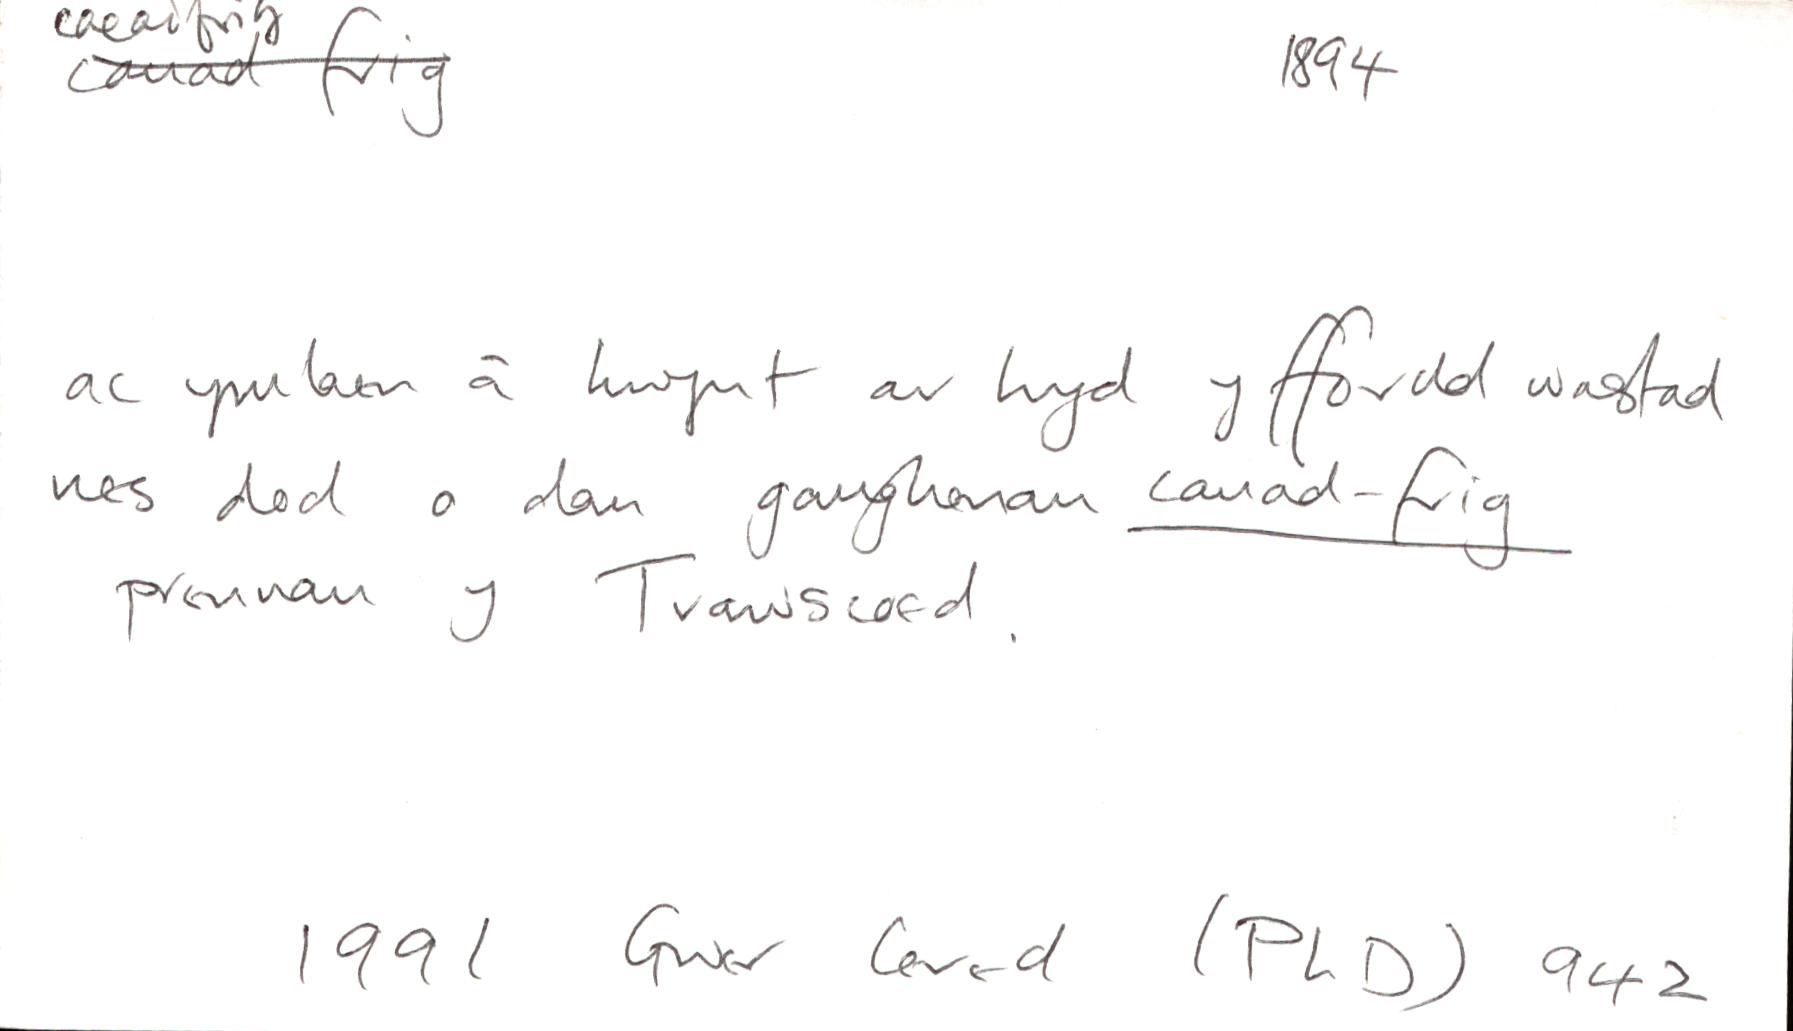 caeadfrig
cauad frig
1894
ac ymlaen â hwynt ar hyd y ffordd wastad
nes dod o dan ganghenau cauad-frig
prennau y Trawscoed.
1991 Cered (PhD) 942